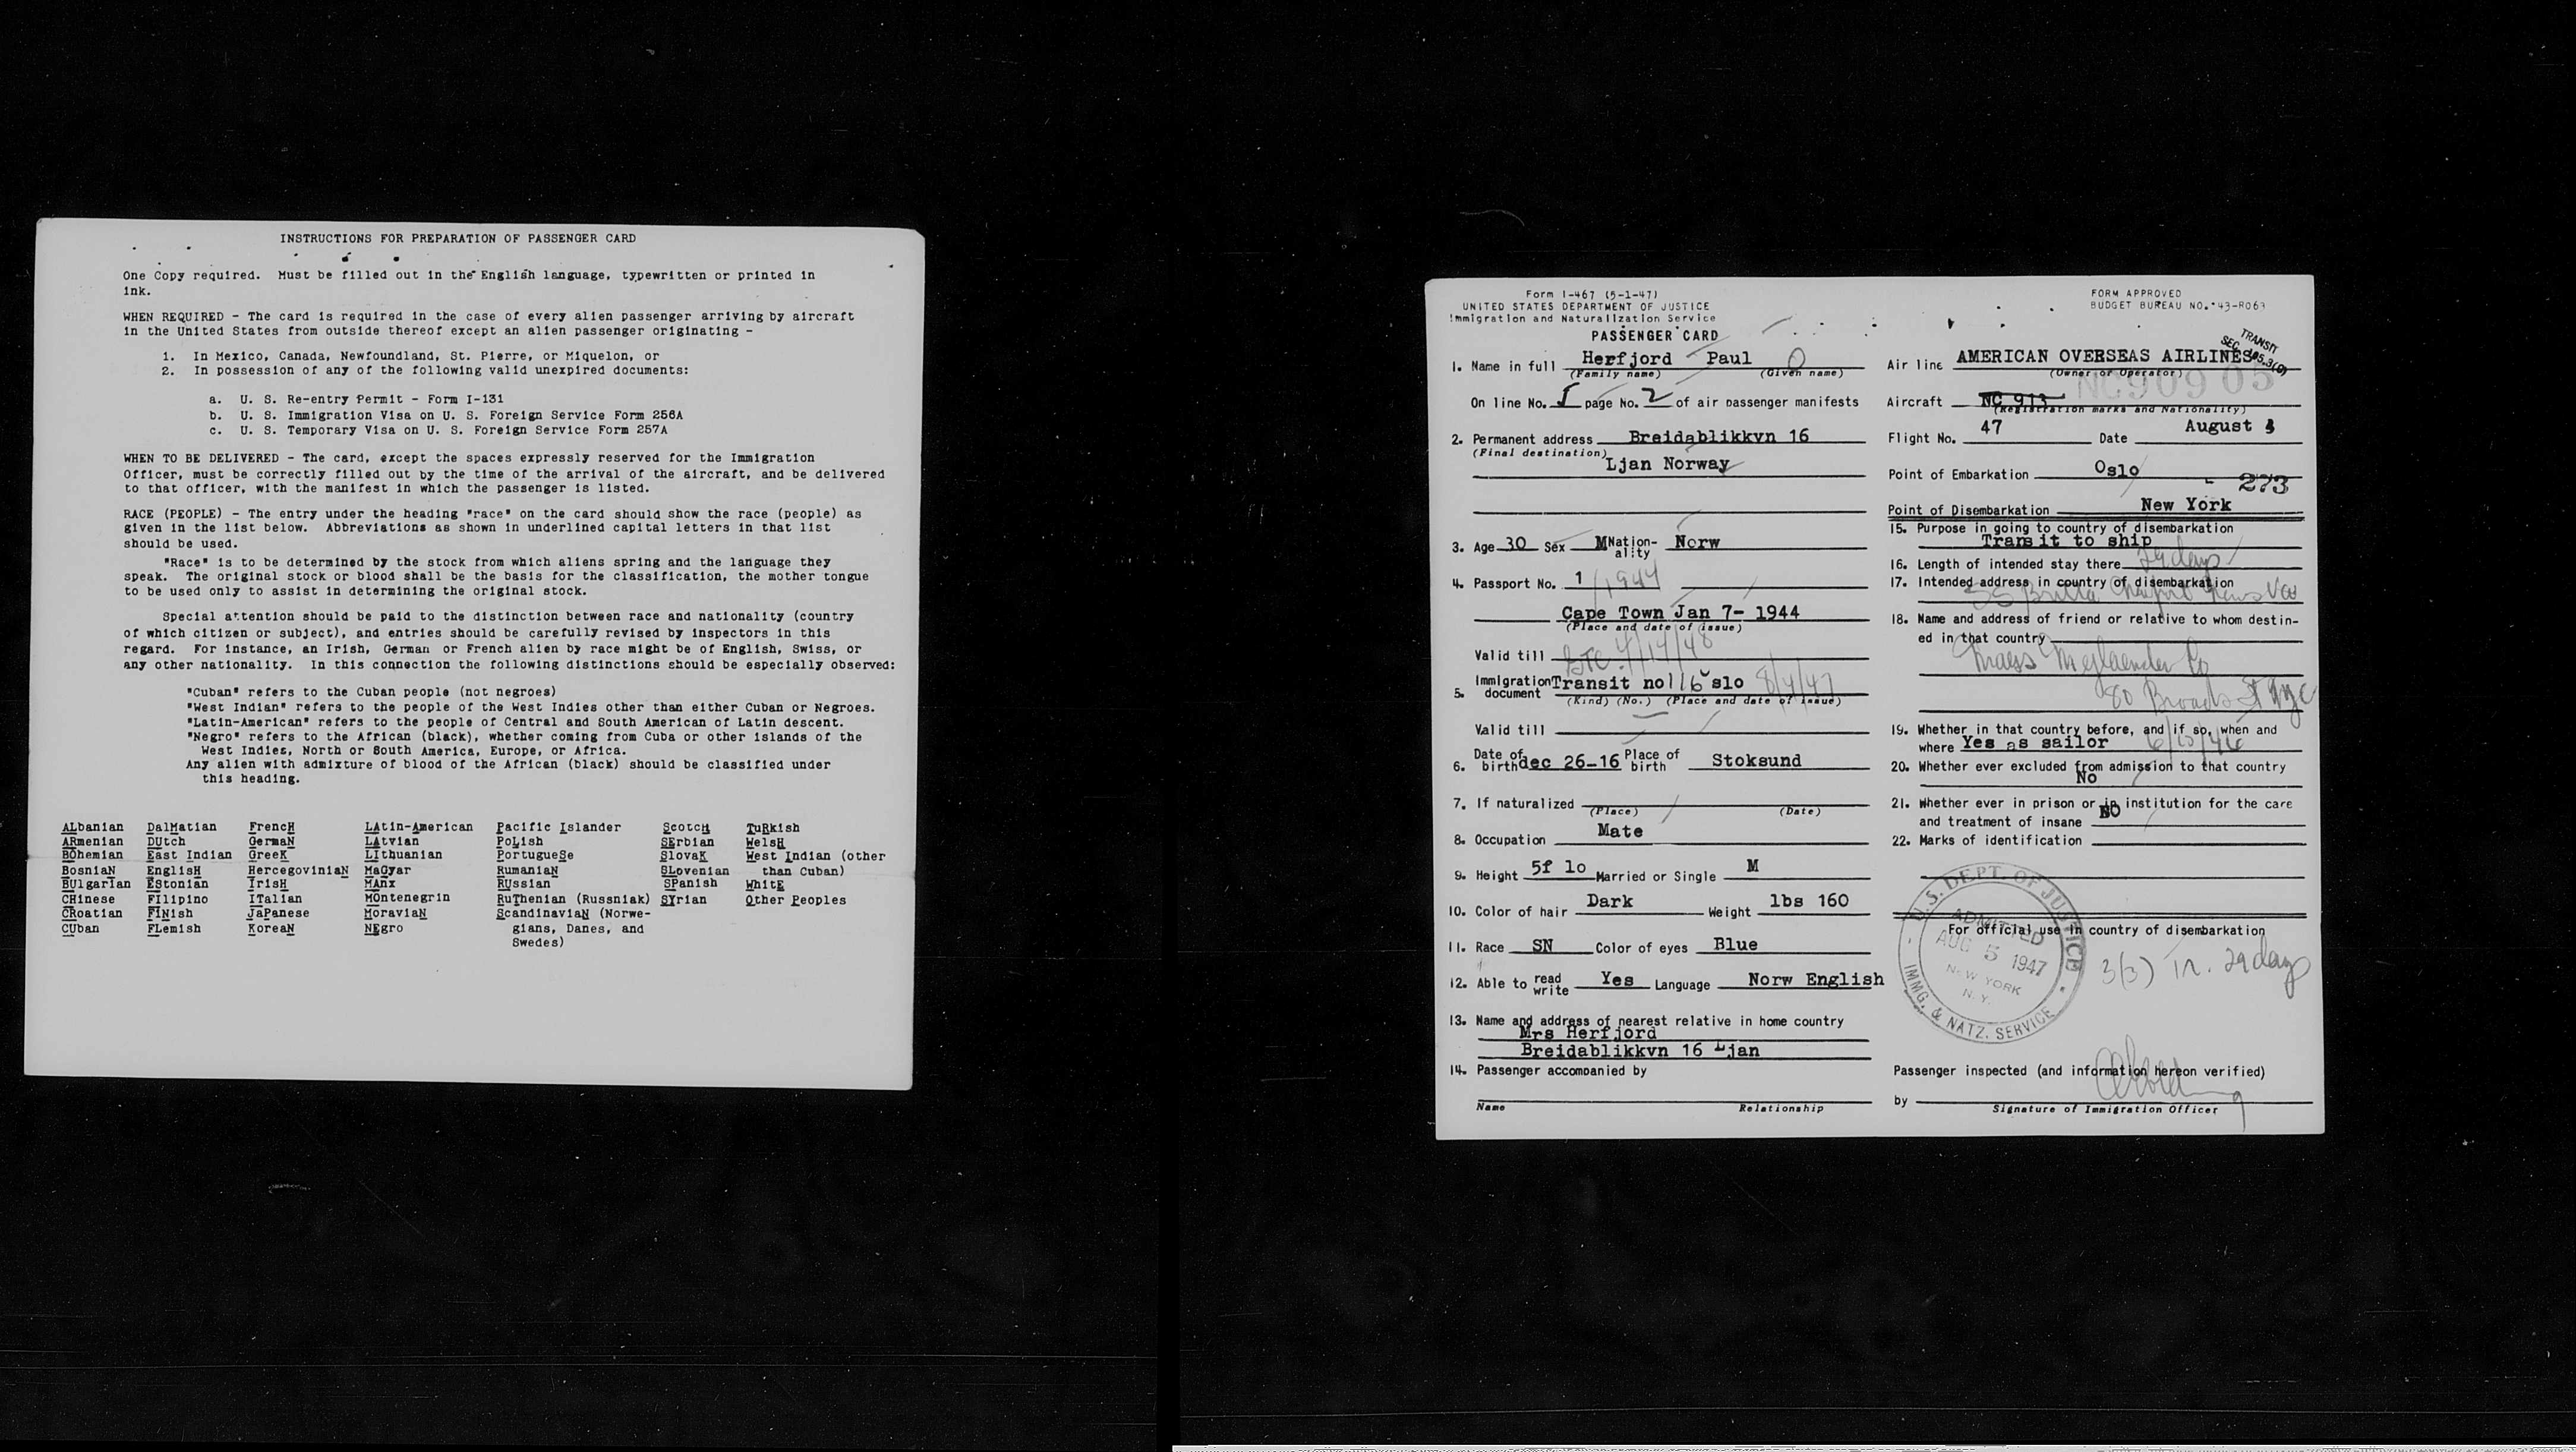 INSTRUCTIONS FOR PREPARATION OF PASSENGER CARD
One Copy required. Must be filled out in the English language, typewritten or printed in
ink.
WHEN REQUIRED - The card is required in the case of every alien passenger arriving by aircraft
in the United States from outside thereof except an alien passenger originating -
1. In Mexico, Canada, Newfoundland, St. Pierre, or Miquelon, or
2. In possession of any of the following valid unexpired documents:
a. U. S. Re-entry Permit - Form I-131
b. U. S. Immigration Visa on U. S. Foreign Service Form 256A
c. U. S. Temporary Visa on U. S. Foreign Service Form 257A
WHEN TO BE DELIVERED - The card, except the spaces expressly reserved for the Immigration
Officer, must be correctly filled out by the time of the arrival of the aircraft, and be delivered
to that officer, with the manifest in which the passenger is listed.
RACE (PEOPLE) - The entry under the heading "race" on the card should show the race (people) as
given in the list below. Abbreviations as shown in underlined capital letters in that list
should be used.
"Race" is to be determined by the stock from which aliens spring and the language they
speak. The original stock or blood shall be the basis for the classification, the mother tongue
to be used only to assist in determining the original stock.
Special attention should be paid to the distinction between race and nationality (country
of which citizen or subject), and entries should be carefully revised by inspectors in this
regard. For instance, an Irish, German or French alien by race might be of English, Swiss, or
any other nationality. In this connection the following distinctions should be especially observed:
"Cuban" refers to the Cuban people (not negroes)
"West Indian" refers to the people of the West Indies other than either Cuban or Negroes.
"Latin-American" refers to the people of Central and South American of Latin descent.
"Negro" refers to the African (black), whether coming from Cuba or other islands of the
West Indies, North or South America, Europe, or Africa.
Any alien with admixture of blood of the African (black) should be classified under
this heading.
ALbanian DalMatian FrencH LAtin-American Pacific Islander ScotcH TuRkish
ARmenian DUtch GermaN LAtvian PoLish SErbian WelsH
BOhemian East Indian GreeK LIthuanian PortugueSe SlovaK West Indian (other
BosniaN EnglisH HercegoviniaN MaGyar RumaniaN SLovenian than Cuban)
BUlgarian EStonian IrisH MAnx RUssian SPanish WhitE
CHinese FIlipino ITalian MOntenegrin RuThenian (Russniak) SYrian Other Peoples
CRoatian FINish JaPanese MoraviaN ScandinaviaN (Norwe-
CUban FLemish KoreaN NEgro gians, Danes, and
Swedes)
Form I-467 (5-1-47)
UNITED STATES DEPARTMENT OF JUSTICE
Immigration and Naturalization Service
PASSENGER CARD
1. Name in full Herfjord Paul O
(Family name) (Given name)
On line No. 5 page No. 2 of air passenger manifests
2. Permanent address Breidablikkvn 16
(Final destination)
Ljan Norway
3. Age 30 Sex M Nation-ality Norw
4. Passport No. 1/1944
Cape Town Jan 7- 1944
(Place and date of issue)
Valid till 4/14/48
5. Immigration document Transit no 116 slo 8/4/47
(Kind) (No.) (Place and date of issue)
Valid till
6. Date of birth dec 26-16 Place of birth Stoksund
7. If naturalized
(Place) (Date)
8. Occupation Mate
9. Height 5f 1o Married or Single M
10. Color of hair Dark Weight lbs 160
11. Race SN Color of eyes Blue
12. Able to read write Yes Language Norw English
13. Name and address of nearest relative in home country
Mrs Herfjord
Breidablikkvn 16 Ljan
14. Passenger accompanied by
Name Relationship
FORM APPROVED
BUDGET BUREAU NO. 43-R063
TRANSIT
Air line AMERICAN OVERSEAS AIRLINES
(Owner or Operator)
NC90905
Aircraft NC 913
(Registration marks and Nationality)
Flight No. 47 Date August
Point of Embarkation Oslo
273
Point of Disembarkation New York
15. Purpose in going to country of disembarkation
Transit to ship
16. Length of intended stay there 29 days
17. Intended address in country of disembarkation
18. Name and address of friend or relative to whom destin-
ed in that country
80 Broad St NYC
19. Whether in that country before, and if so, when and
where Yes as sailor
20. Whether ever excluded from admission to that country
No
21. Whether ever in prison or in institution for the care
and treatment of insane NO
22. Marks of identification
For official use in country of disembarkation
U.S. DEPT. OF JUSTICE
ADMITTED
AUG 5 1947
NEW YORK
N. Y.
IMMG. & NATZ. SERVICE
3(3) 29 days
Passenger inspected (and information hereon verified)
by
Signature of Immigration Officer